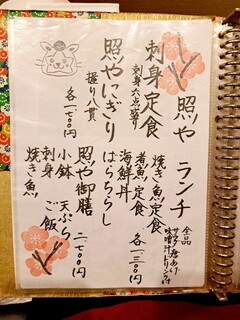 照や ランチ
全品
サラダ・唐あげ
味噌汁・ドリンク付
刺身定食
刺身六点盛り
焼き魚定食
煮魚定食
海鮮丼
はらちらし
各一三〇〇円
照やにぎり
握り八貫
各一七〇〇円
照や御膳 二七〇〇円
小鉢 天ぷら
刺身 ご飯
焼き魚